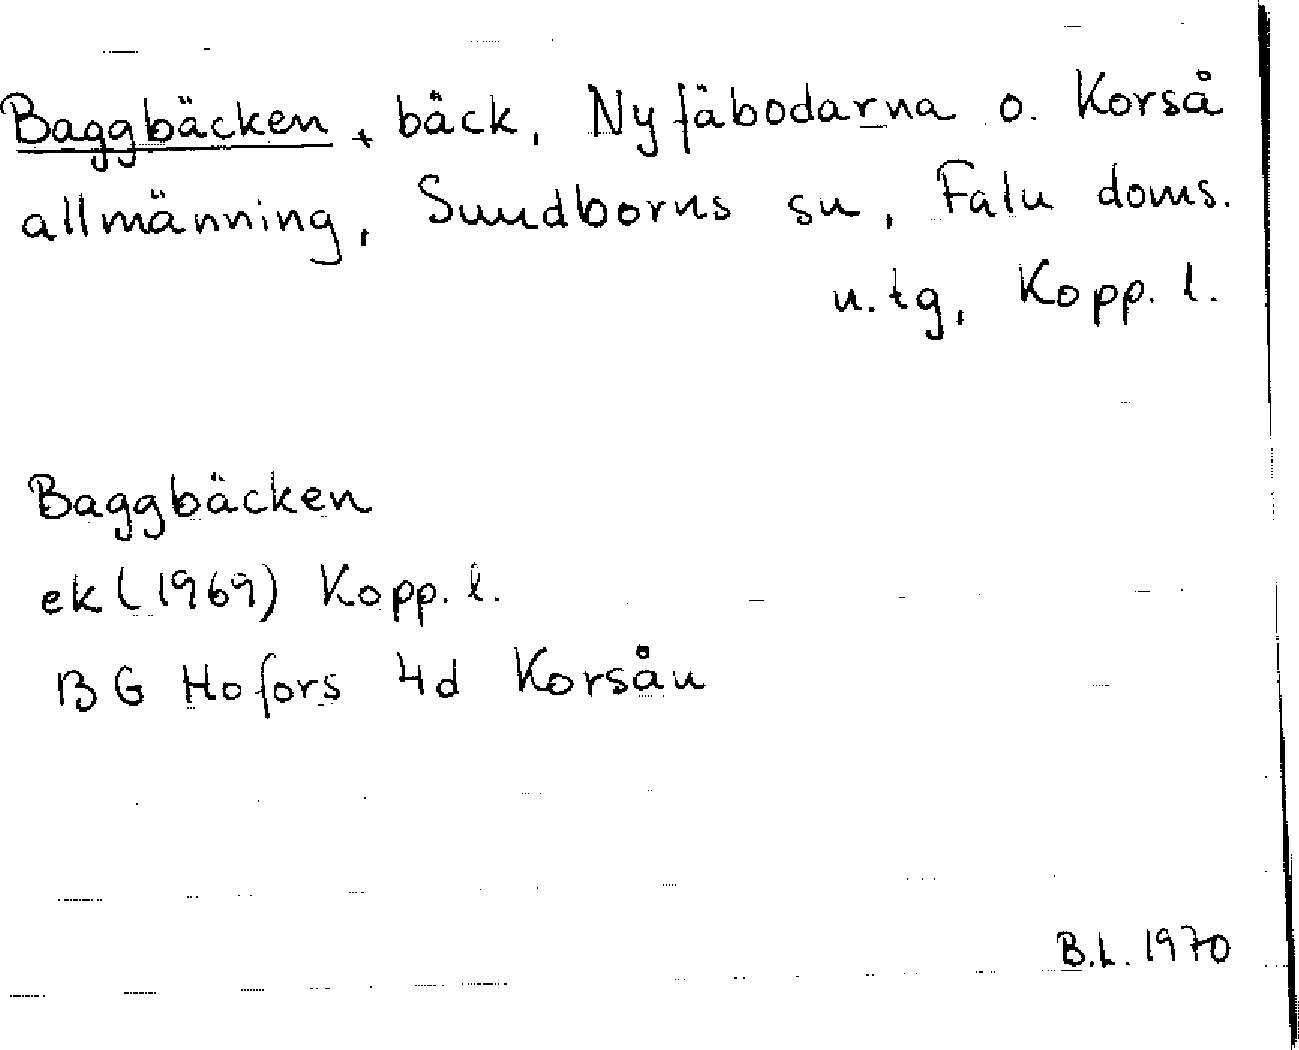 Baggbäcken, bäck, Nyfäbodarna o. Korså
allmänning, Sundborns sn, Falu doms.
n.tg, Kopp. l.
Baggbäcken
ek (1969) Kopp. l.
BG Hofors 4d Korsån
B.L. 1970